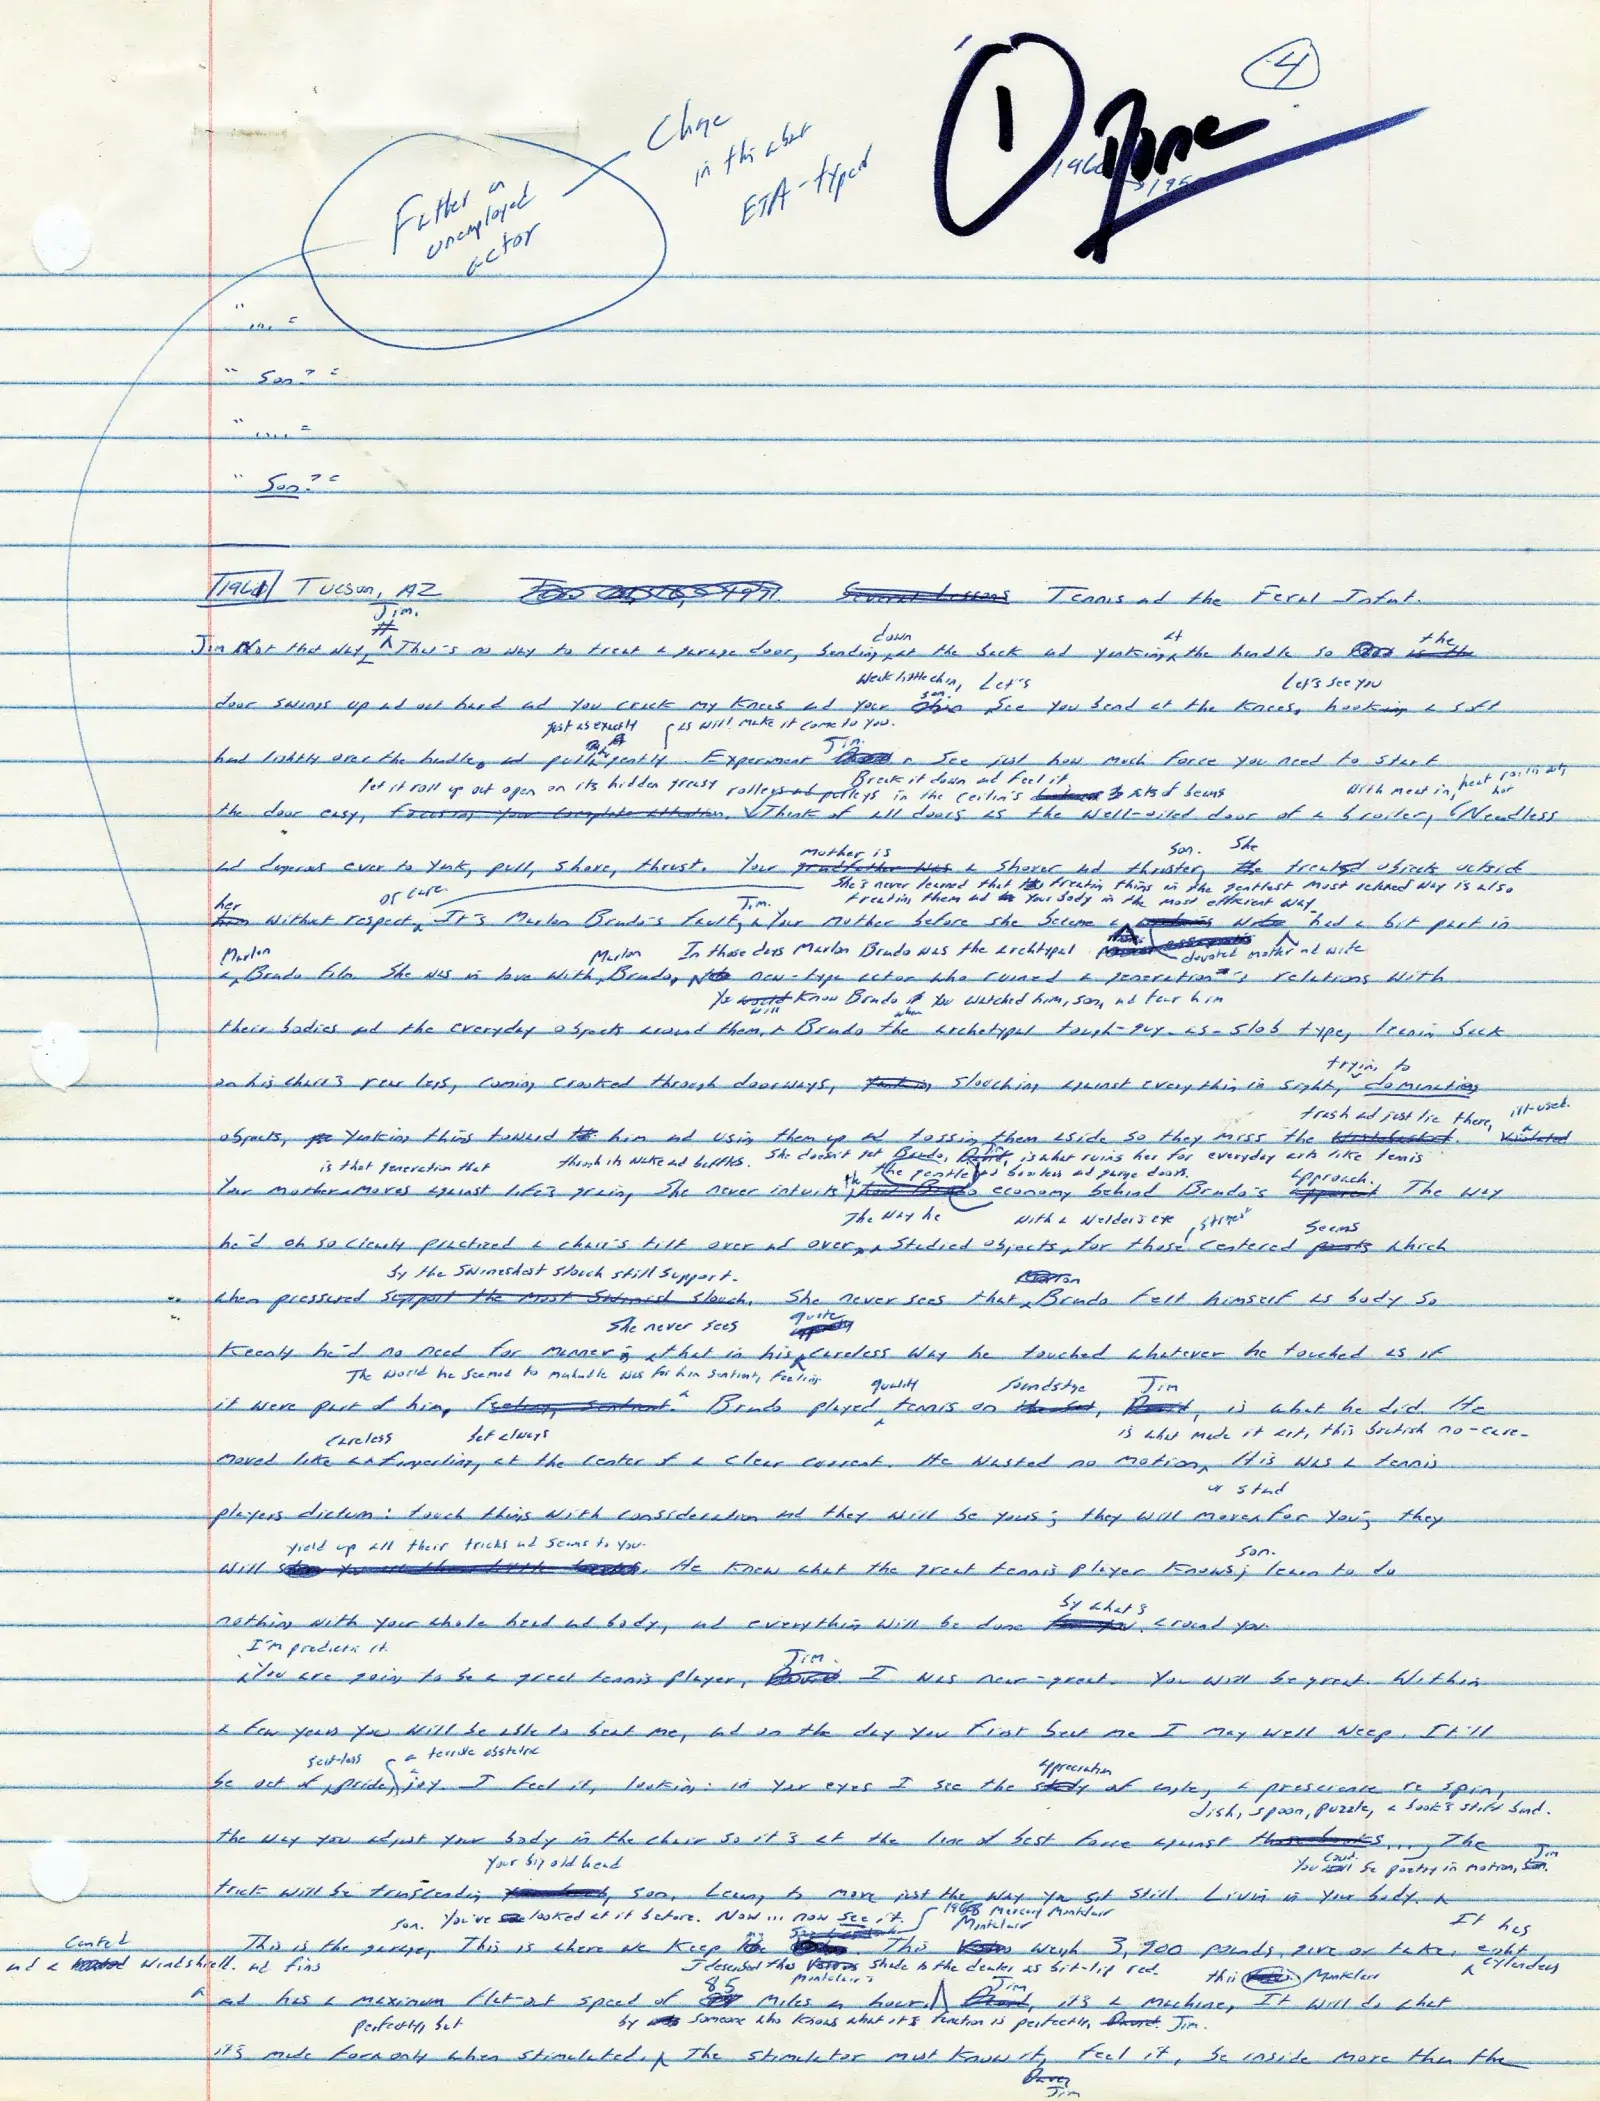 4
1
Done
1960
Change
in this
ETA-typed
Father an
unemployed
actor
"...."
"Son?"
"...."
"Son?"
1960 Tucson, AZ Several Lessons Tennis and the Feral Infant.
Jim.
down at the
Jim Not that way, There's no way to treat a garage door, bending at the back and yanking the handle so is the
Weak little chin, Let's Let's see you
son.
door swings up and out hard and you crack my knees and your See you bend at the knees, hooking a soft
just as exactly as will make it come to you.
Jim.
hand lightly over the handle, and pulling gently. Experiment See just how much force you need to start
let it roll up out open on its hidden greasy rolleys and pulleys in the ceiling's of beams Break it down and feel it With meat in, heat hot
the door easy, focusing your complete attention. Think of all doors as the well-oiled door of a broiler, Needless
Mother is son. She
and dangerous ever to yank, pull, shove, thrust. Your grandfather was a shover and thruster, He treated objects outside
She's never learned that treating things in the gentlest most relaxed way is also
her or care Jim. treating them and your body in the most efficient way
him without respect, It's Marlon Brando's fault, Your mother before she became a had a bit part in
Marlon Marlon In those days Marlon Brando was the archtypal devoted mother and wife
a Brando film. She was in love with Brando, new-type actor who ruined a generation's relations with
You would will know Brando when you watched him, son, and fear him
their bodies and the everyday objects around them. Brando the archetypal tough-guy-as-slob type, leaning back
trying to
on his chair's rear legs, coming crooked through doorways, slouching against everything in sight, dominating
trash and just lie there, ill-used.
objects, yanking things toward him and using them up and tossing them aside so they miss the wastebasket. Violated
is that generation that though its wake and baffles. She doesn't get Brando, Jim, is what ruins her for everyday arts like tennis
the gentle and broilers and garage doors. approach.
Your mother moves against life's grain, She never intuits how Brando economy behind Brando's The way
The way he with a welder's eye strongest seams
he'd oh so clearly practiced a chair's tilt over and over, studied objects for those centered parts which
by the swinishest slouch still support. Marlon
when pressured support the most swinish slouch. She never sees that Brando felt himself as body so
She never sees quite
keenly he'd no need for manner; that in his careless way he touched whatever he touched as if
The world he seemed to manhandle was for him sentient, feeling
quality soundstage Jim
it were part of him, feeling, sentient. Brando played tennis on the set, David, is what he did. He
careless but always is what made it art, this brutish no-care-
moved like a fingerling at the center of a clear current. He wasted no motion, His was a tennis
or stand
players dictum: touch things with consideration and they will be yours; they will move for you; they
yield up all their tricks and seams to you. son.
will. He knew what the great tennis player knows; learn to do
by what's
nothing with your whole head and body, and everything will be done around you.
I'm predicting it. Jim.
You are going to be a great tennis player, David. I was near-great. You will be great. Within
a few years you will be able to beat me, and on the day you first beat me I may well weep. It'll
selfless a terrible obsteine appreciation
be out of pride, joy. I feel it, looking: in your eyes I see the study of angle, a prescience re spin,
dish, spoon, puzzle, a book's stiff bind.
the way you adjust your body in the chair so it's at the line of best force against those books..., The
Your big old head You could be poetry in motion, Jim
trick will be transcending son, Learn to move just the way you sit still. Living in your body.
son. You've looked at it before. Now... now see it. 1968 Mercury Montclair It has
Montclair
This is the garage, This is where we keep the This weigh 3,900 pounds, give or take, eight
and a windshield. and fins I described this shade to the dealer as bit-lip red. this Montclair cylenders
85 Montclair's Jim
and has a maximum flat-out speed of miles an hour. David, it's a machine, It will do what
perfectly, but by someone who knows what it's function is perfectly, David. Jim.
it's made for only when stimulated. The stimulator must know it, feel it, be inside more than the
Jim